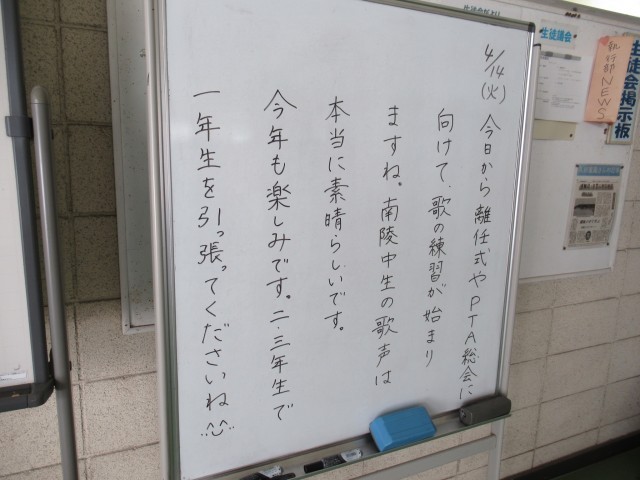 4/14(火) 今日から離任式やPTA総会に
向けて、歌の練習が始まり
ますね。南陵中生の歌声は
本当に素晴らしいです。
今年も楽しみです。二・三年生で
一年生を引っ張ってくださいね
生徒議会
執行部NEWS
生徒会掲示板